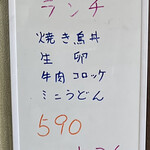 ランチ
焼き鳥丼
生卵
牛肉コロッケ
ミニうどん
590